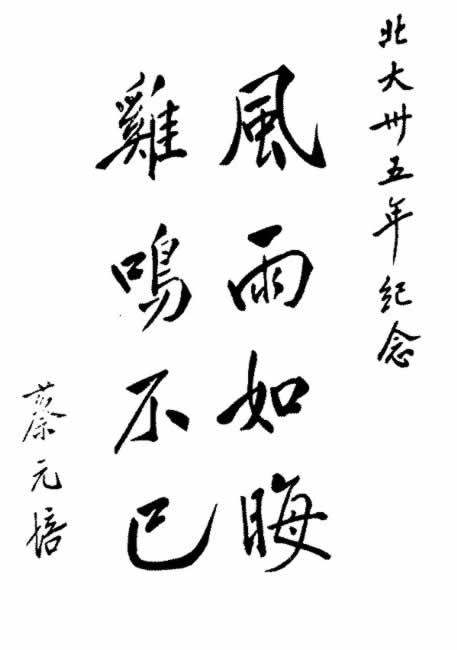 北大卅五年紀念
風雨如晦
雞鳴不已
蔡元培